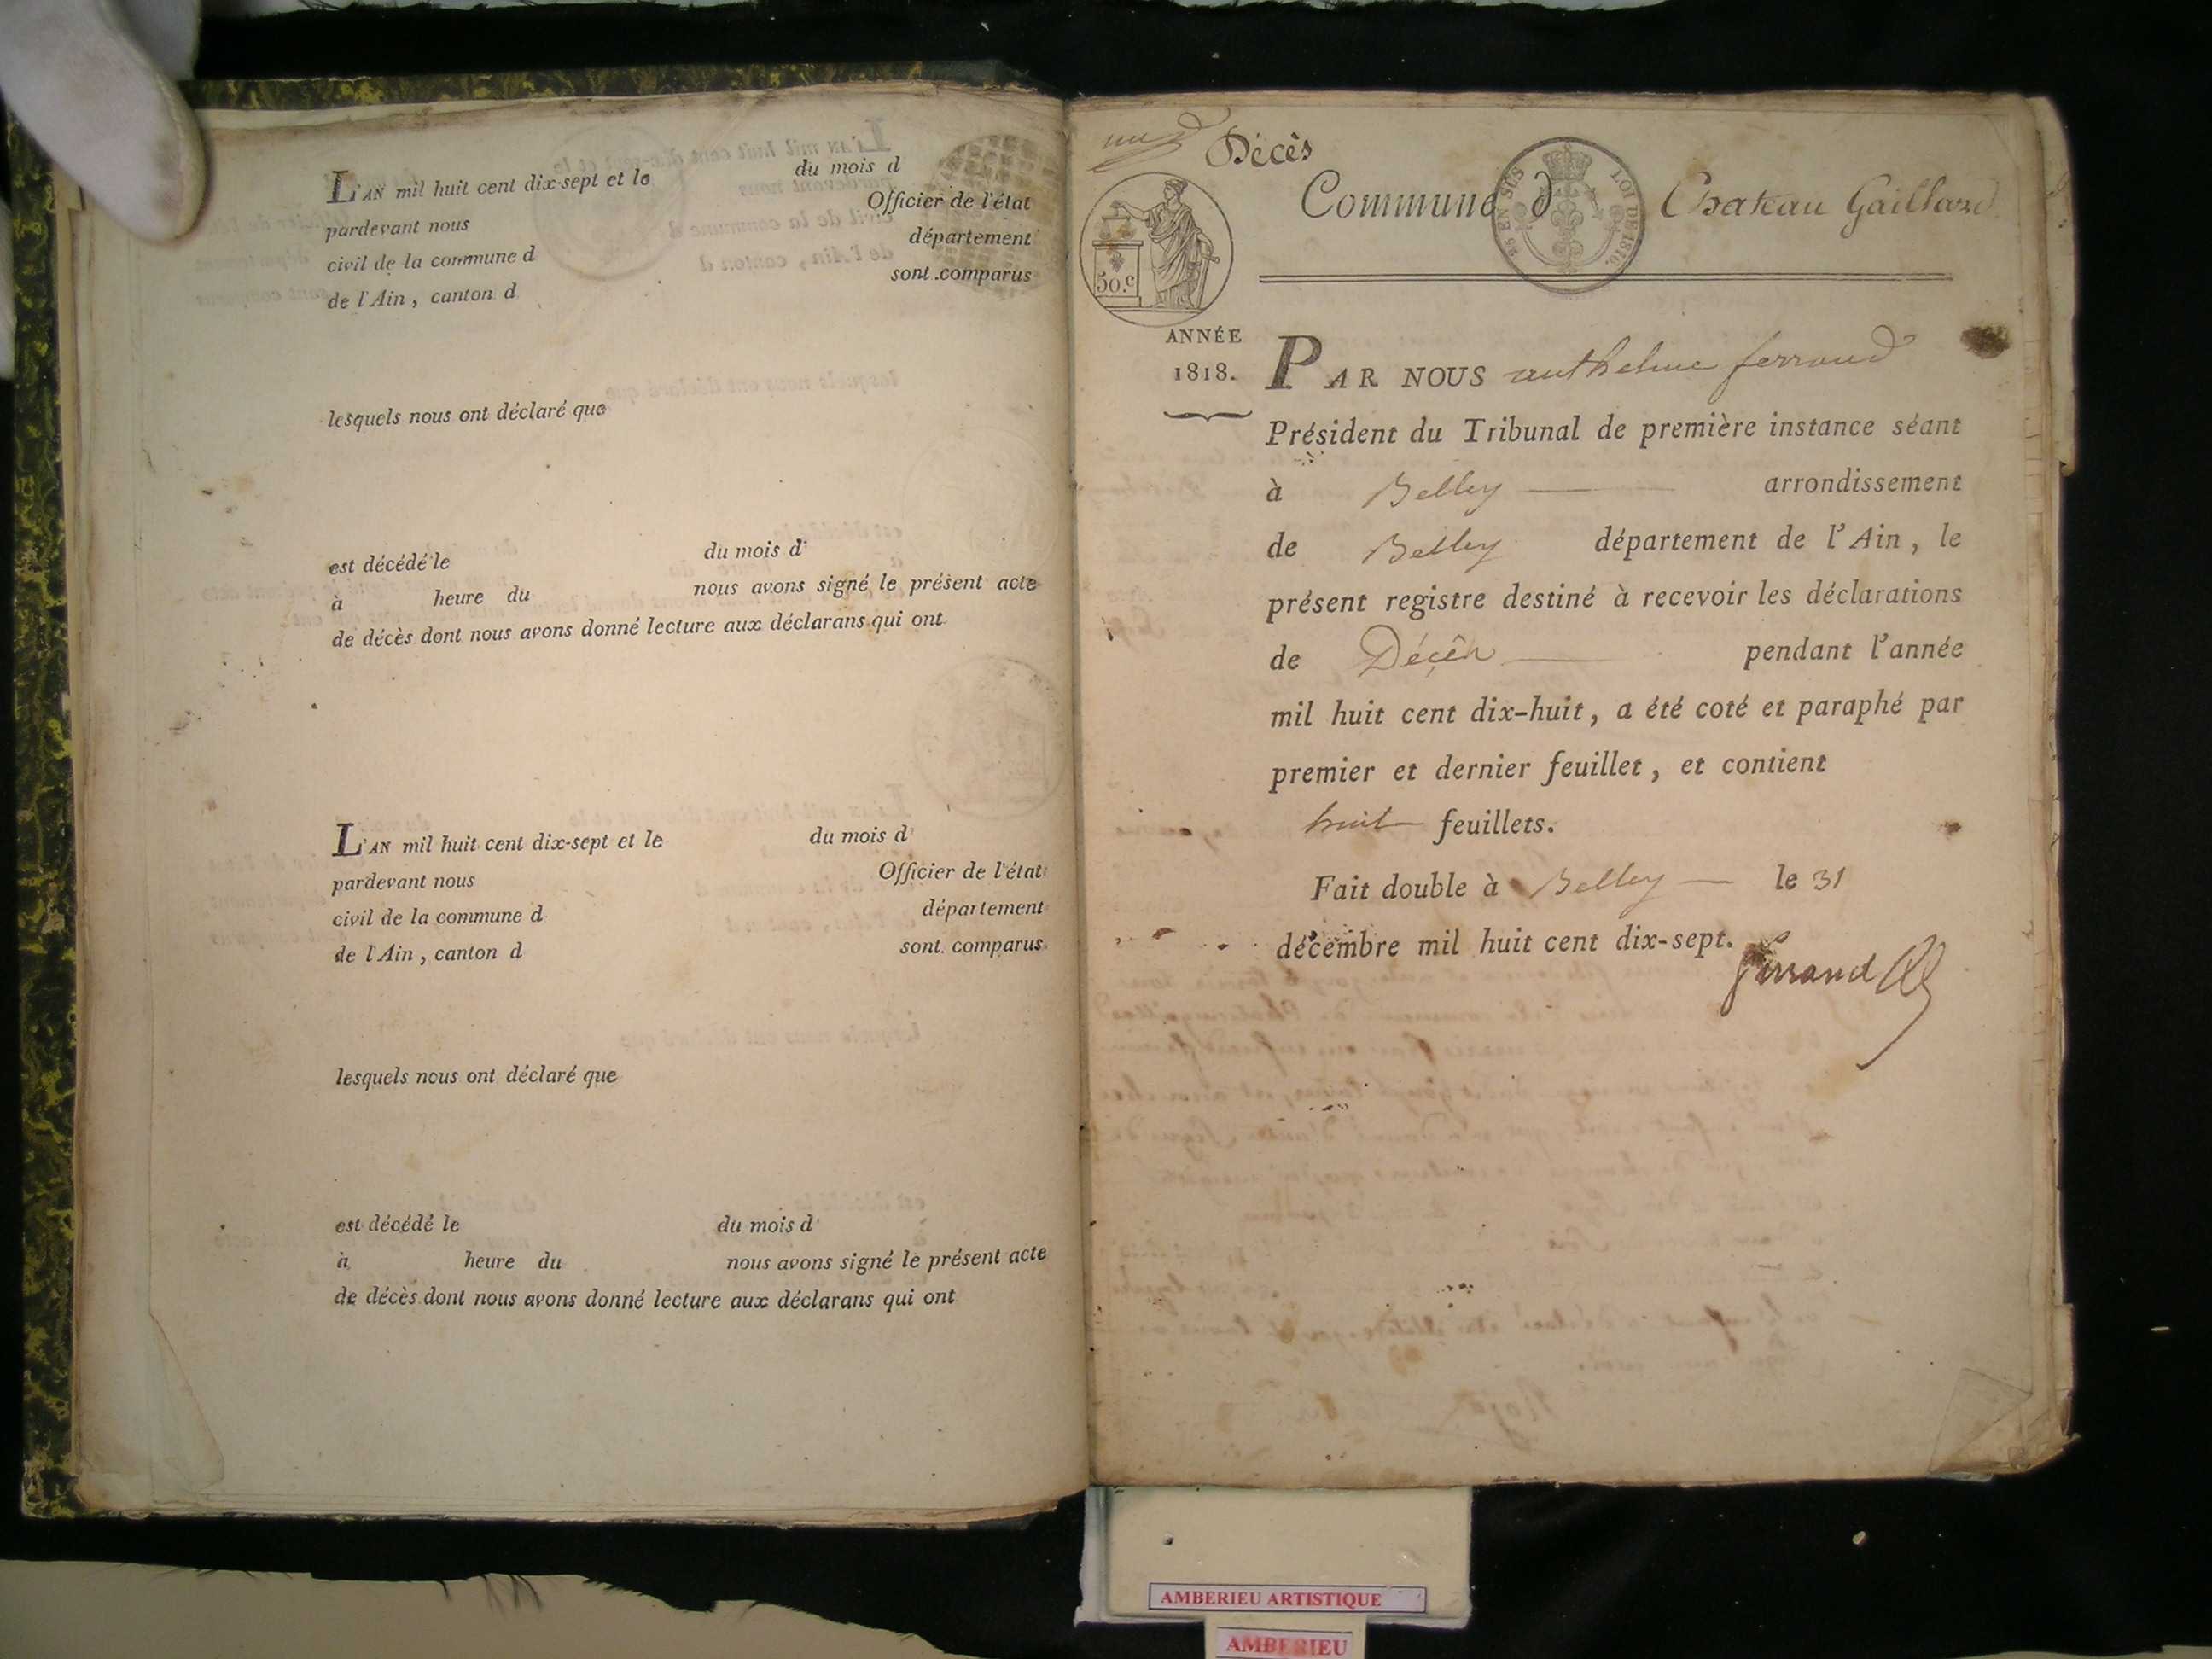 L'AN mil huit cent dix-sept et le du mois d
pardevant nous Officier de l'état
civil de la commune d département
de l'Ain, canton d sont comparus
lesquels nous ont déclaré que
est décédé le du mois d
à heure du nous avons signé le présent acte
de décès dont nous avons donné lecture aux déclarans qui ont
L'AN mil huit cent dix-sept et le du mois d
pardevant nous Officier de l'état
civil de la commune d département
de l'Ain, canton d sont comparus
lesquels nous ont déclaré que
est décédé le du mois d
à heure du nous avons signé le présent acte
de décès dont nous avons donné lecture aux déclarans qui ont
Décès
Commune d Chateau Gaillard
EN SUS LOI DE 1816.
50.c
ANNÉE
1818.
PAR NOUS anthelme ferrand
Président du Tribunal de première instance séant
à Belley arrondissement
de Belley département de l'Ain, le
présent registre destiné à recevoir les déclarations
de Décès pendant l'année
mil huit cent dix-huit, a été coté et paraphé par
premier et dernier feuillet, et contient
huit feuillets.
Fait double à Belley le 31
décembre mil huit cent dix-sept.
ferrand
AMBERIEU ARTISTIQUE
AMBERIEU